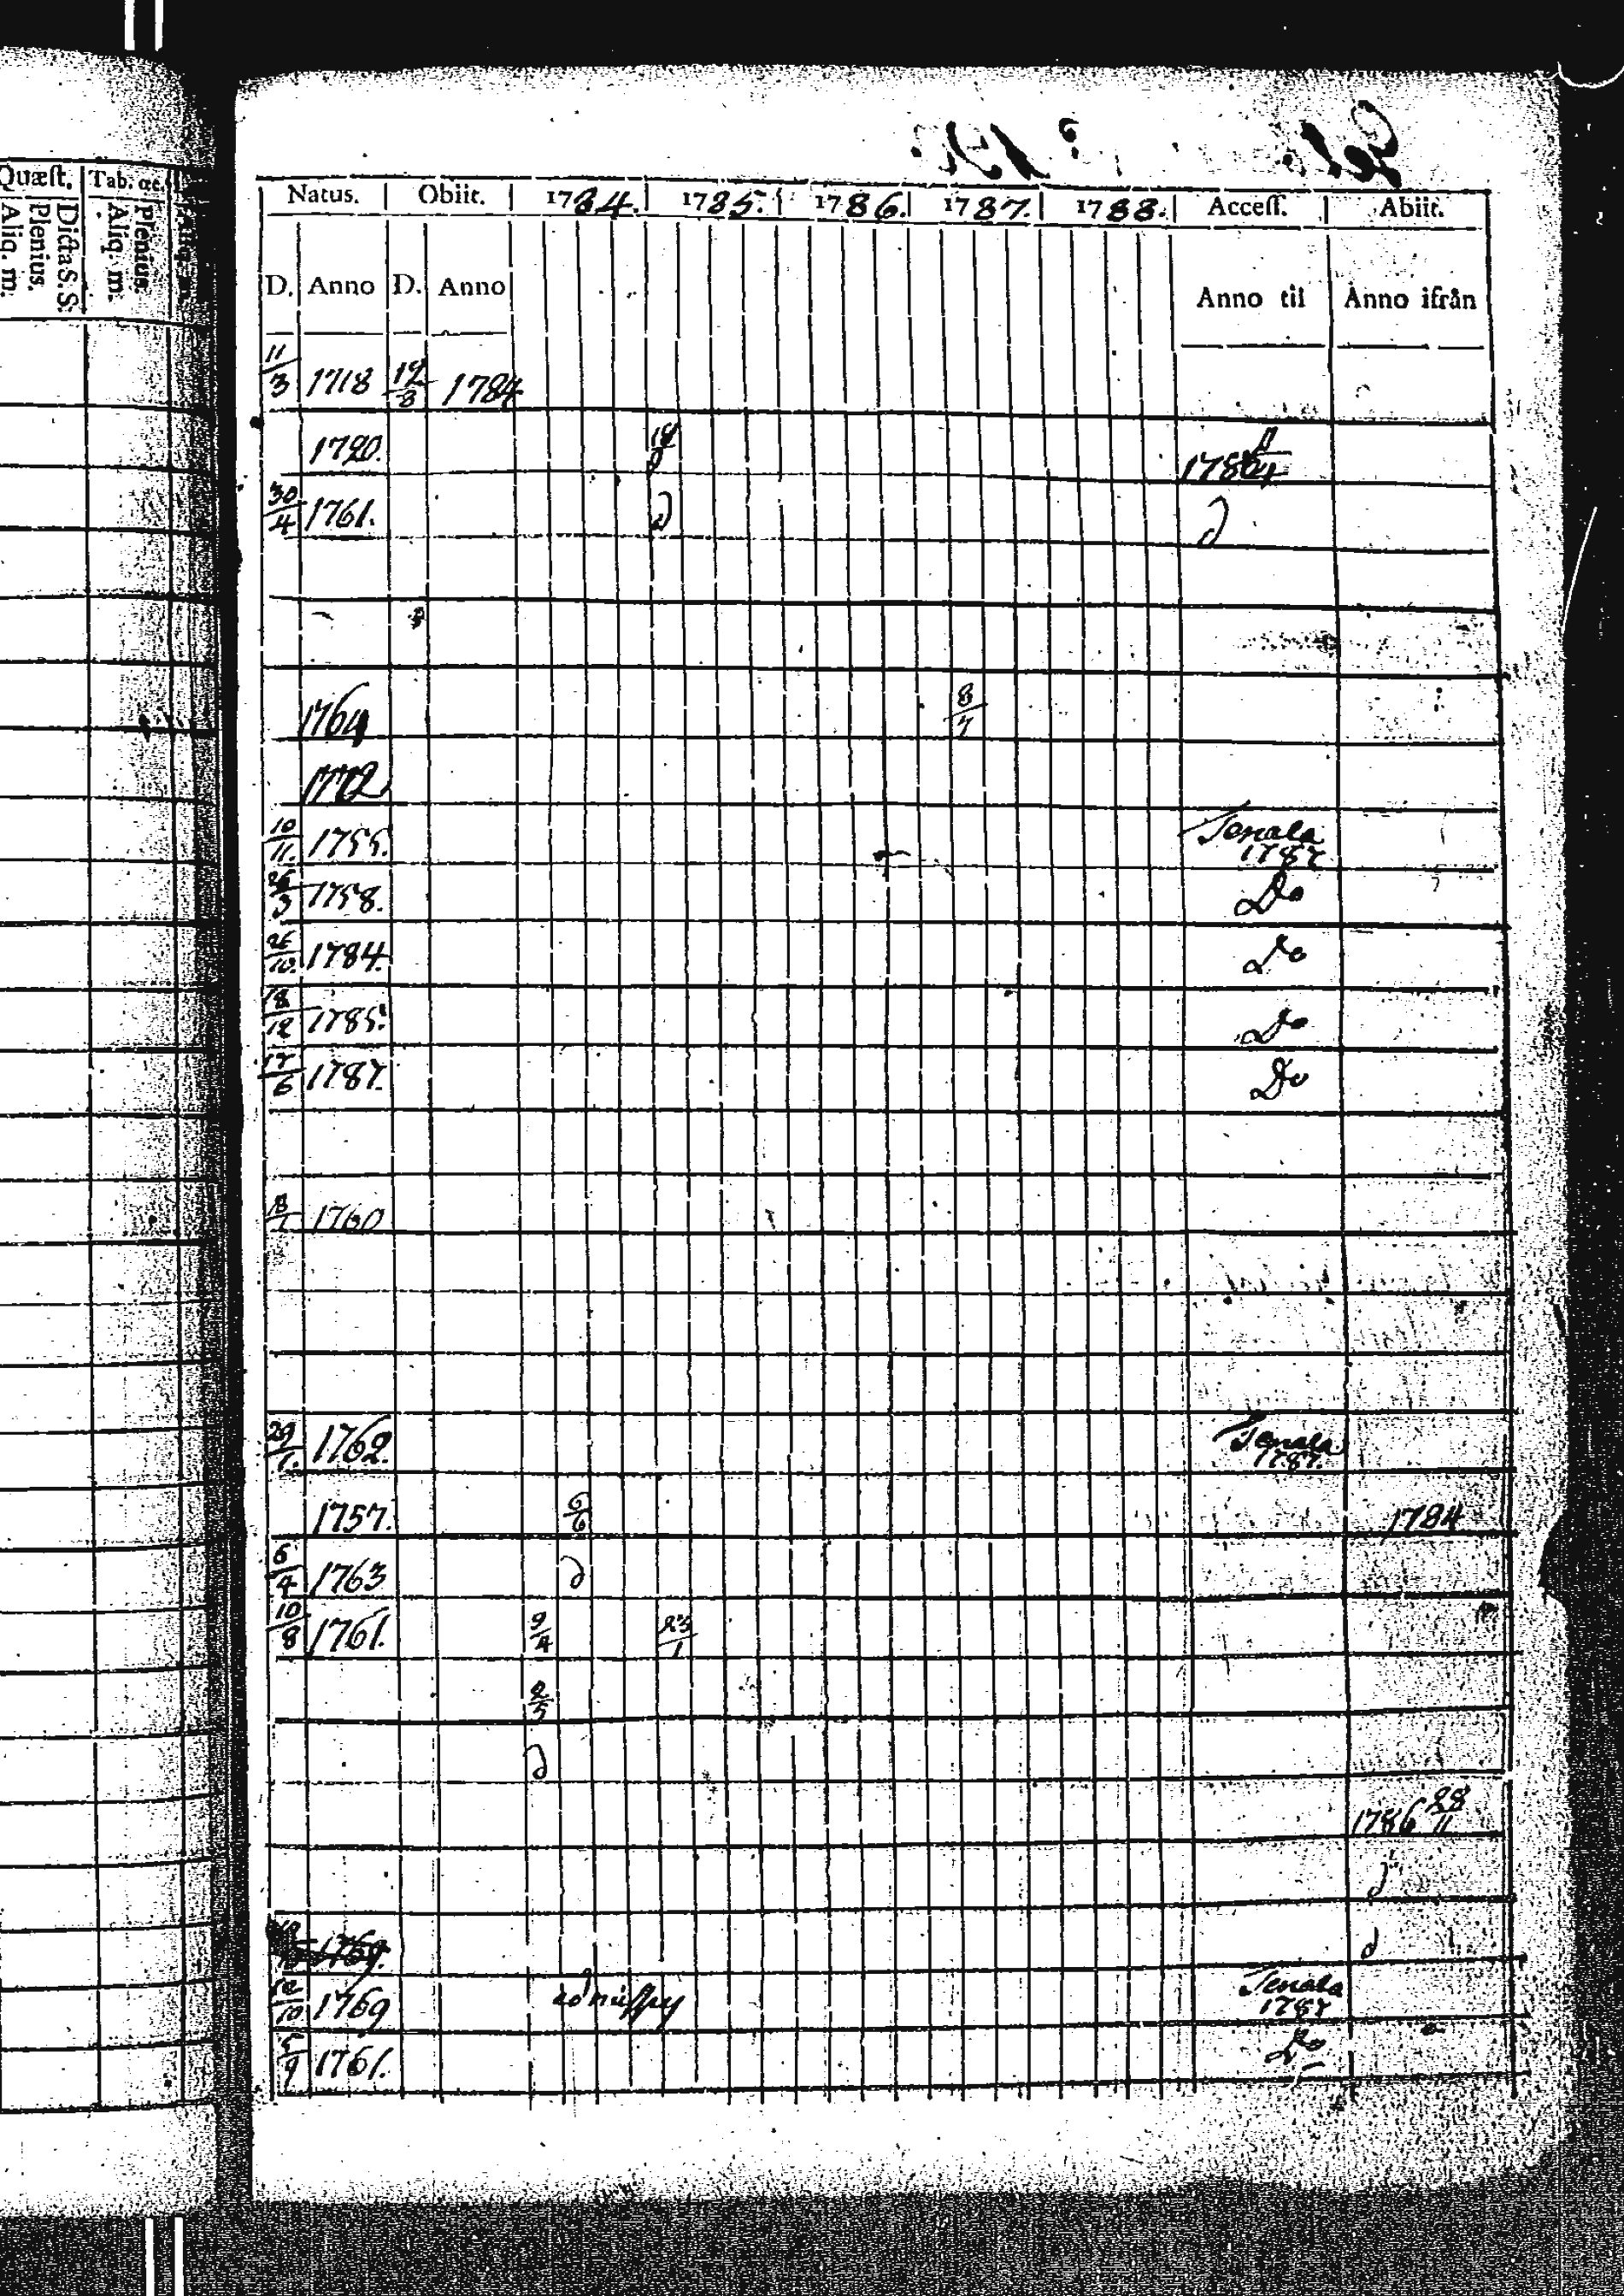 Quæst. Tab. œc.
Aliq. m. Plenius. Dicta S. S. Aliq. m. Plenius.
Natus. Obiit. 1784. 1785. 1786. 1787. 1788. Access. Abiit.
D. Anno D. Anno Anno til Anno ifrån
11/3 1718 19/8 1784
1720.
30/4 1761. d d
1764 8/7
1772
10/11. 1755. Tenala 1787
1758. Do
26/10. 1784. Do
18/12 1785. Do
17/6 1787. Do
1760
29/1. 1762. Tenala 1787.
1757. 6/6 1784
6/4 1763 d
10/8 1761. 9/4 23/1
2/5
d
1786 28/11
d
1769. d
12/10 1769 Tenala 1787
5/9 1761. Do